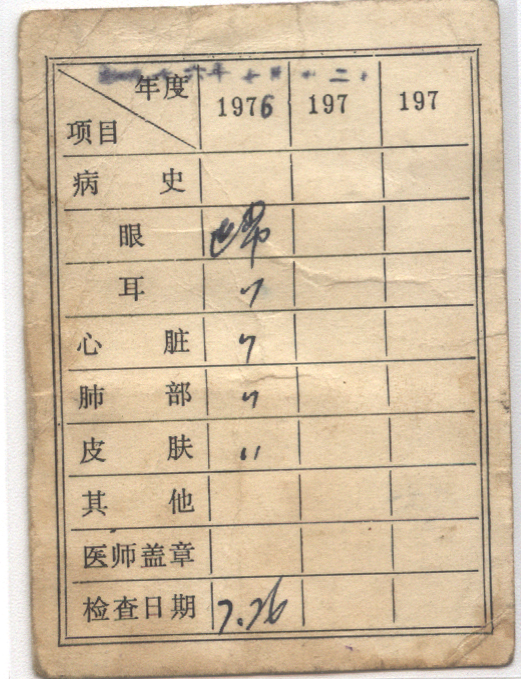 年度 1976 197 197
项目
病史
眼 正常
耳 〃
心脏 〃
肺部 〃
皮肤 〃
其他
医师盖章
检查日期 7.26